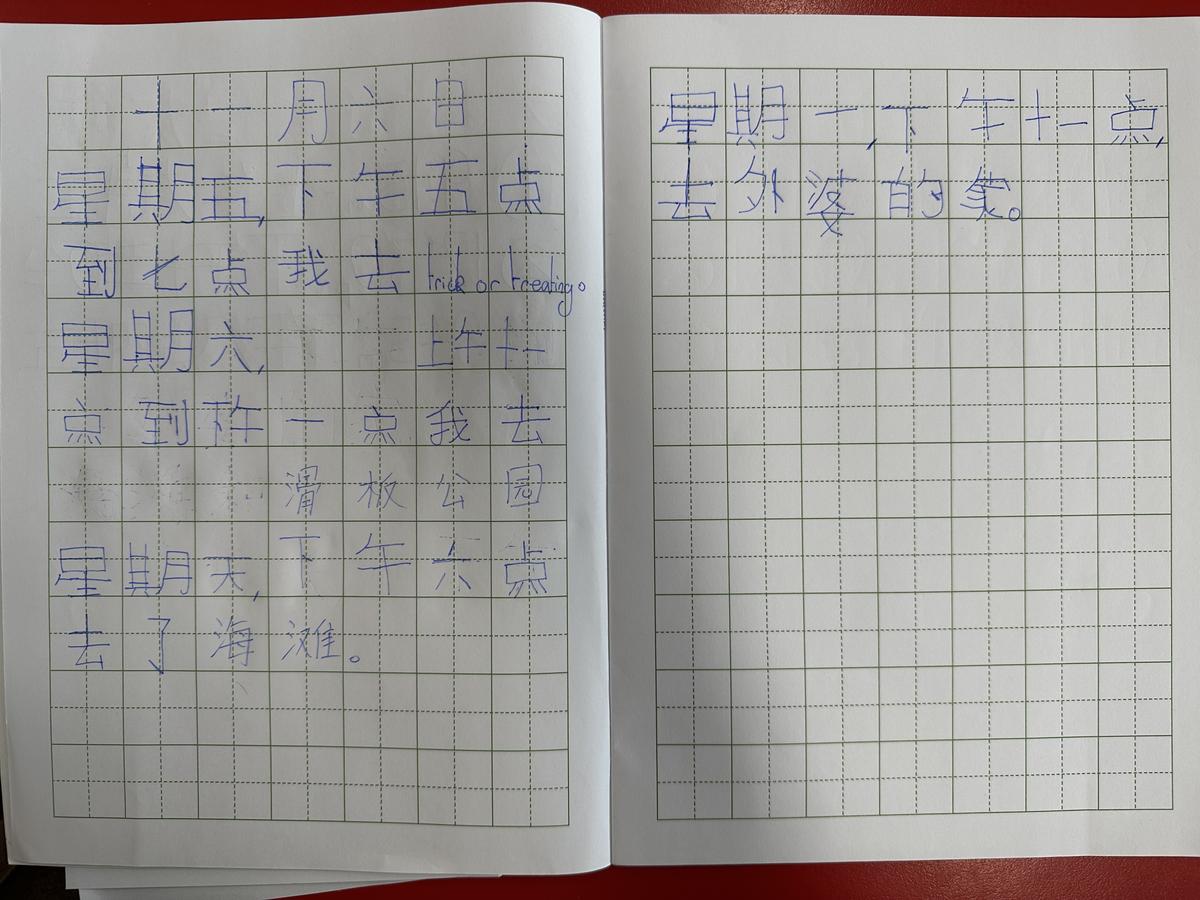 十一月六日
星期五,下午五点
到七点我去trick or treating。
星期六,上午十一
点到下午一点我去
滑板公园
星期天,下午六点
去了海滩。
星期一,下午十一点,
去外婆的家。